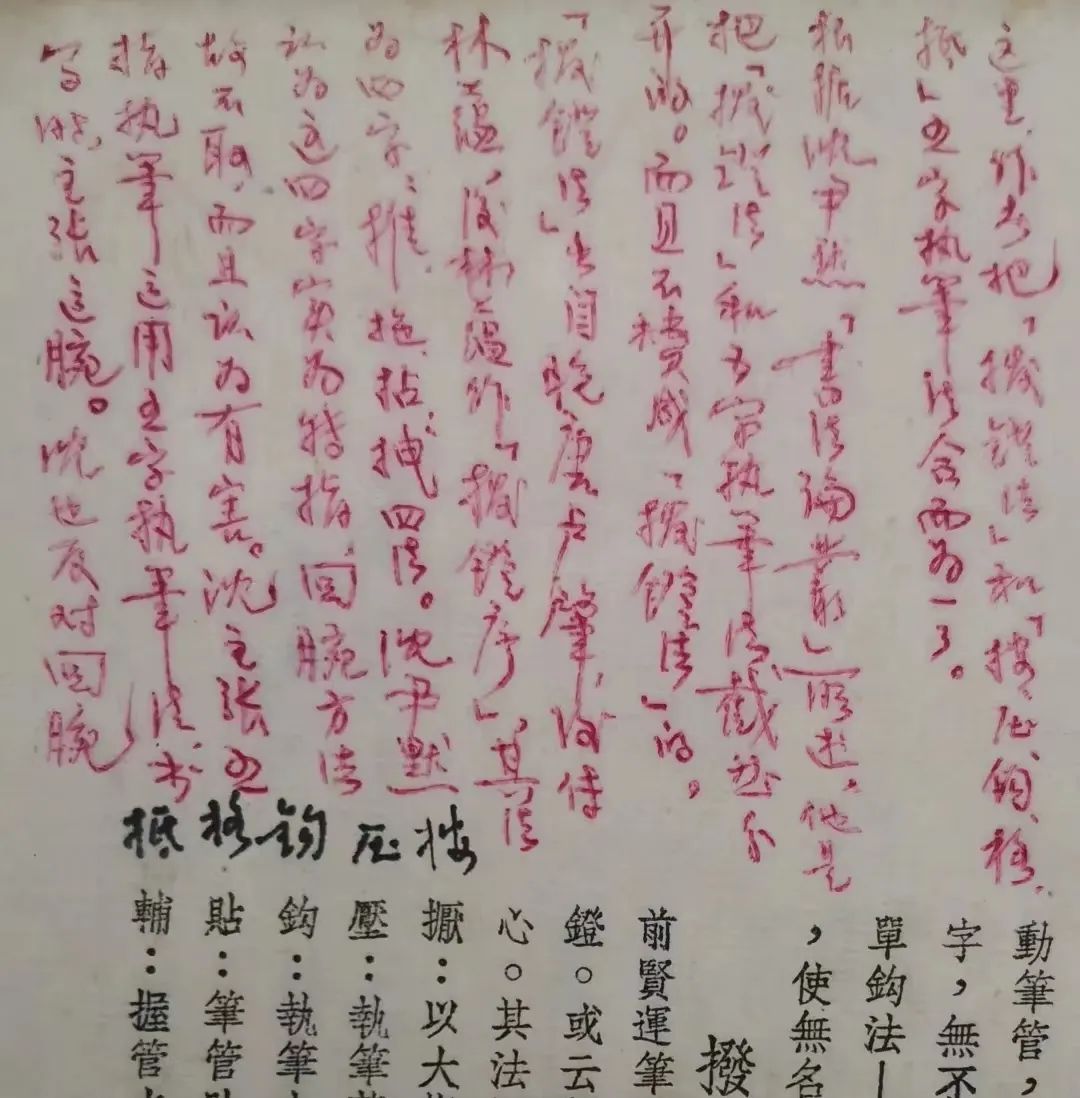 这里,作者把「撥镫法」和「擫、压、钩、格、
抵」五字执筆法合而为一了。
根據沈尹默「書法論叢」一所述,他是
把「撥镫法」和五字执筆法截然分
开的。而且不赞成「撥镫法」的。
「撥镫法」出自晚唐卢肇,後传
林蕴,後林蕴作「撥镫序」,其法
为四字:推、拖、拈、拽四法。沈尹默
认为这四字实为转指、回腕方法
故不取,而且认为有害。沈主张五
指执筆运用五字执筆法书
写时,主张运腕。沈也反对回腕
擫 压 钩 格 抵
動筆管,
字,無不
單鈎法
,使無名
撥
前賢運筆
鐙。或云
心。其法
擫:以大
壓:執筆
鈎:執筆
貼:筆管
輔:握管